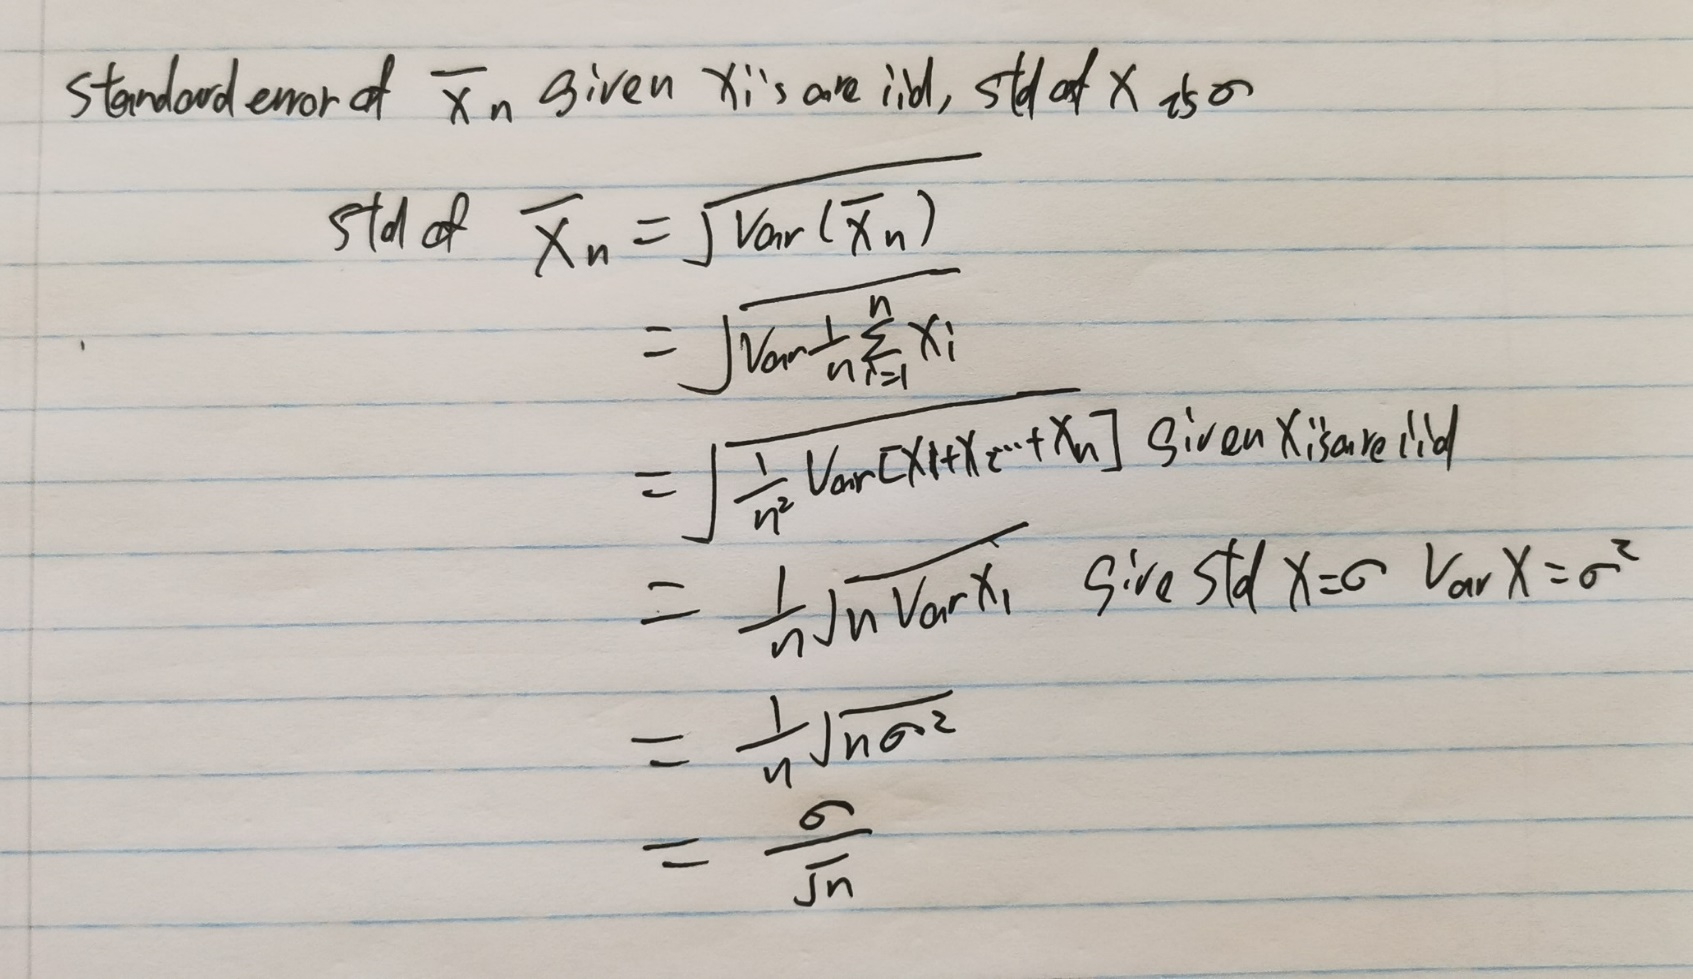 standard error of X̄n given Xi's are iid, std of X is σ
std of X̄n = √Var(X̄n)
= √Var 1/n Σ_{i=1}^{n} Xi
= √1/n² Var[X1+X2...+Xn] given Xi's are iid
= 1/n √n Var X1 give std X=σ Var X=σ²
= 1/n √nσ²
= σ/√n